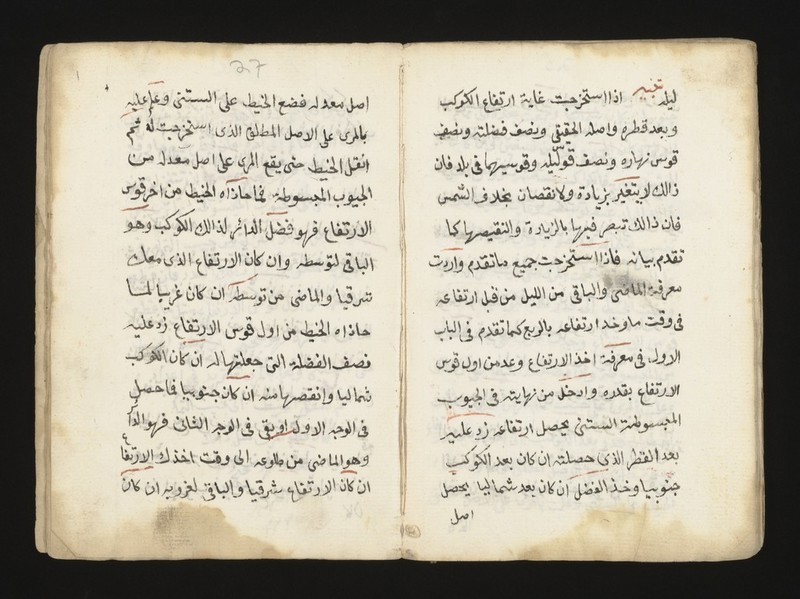 ليله تنبيه اذا استخرجت غاية ارتفاع الكوكب
وبعد قطره واصله الحقيقى ونصف فضلته ونصف
قوس نهاره ونصف قوس ليله وقوسيهما فى بلد فان
ذالك لا يتغير بزيادة ولا نقصان بخلاف الشمس
فان ذالك فيها بالزيادة والنقيصها كما
تقدم بيانه فاذا استخرجت جميع ما تقدم واردت
معرفة الماضى والباقى من الليل من قبل ارتفاعه
فى وقت ماوخد ارتفاعه بالربع كما تقدم فى الباب
الاول فى معرفة اخذ الارتفاع وعد من اول قوس
الارتفاع بقدره وادخل من نهايته فى الجيوب
المبسوطة الستينى يحصل ارتفاعه زد عليه
بعد القطر الذى حصلته ان كان بعد الكوكب
جنوبيا وخذ الفضل ان كان بعد شماليا يحصل
اصل
27
اصل معدله فضع الخيط على الستينى وعلم عليه
بالمرى على الاصل المطلق الذى استخرجت له ثم
انقل الخيط حتى يقع المرى على اصل معدله من
الجيوب المبسوطة فما حاذاه الخيط من اخر قوس
الارتفاع فهو فضل الدائر لذالك الكوكب وهو
الباقى لتوسطه وان كان الارتفاع الذى معك
شرقيا والماضى من توسطه ان كان غربيا لما
حاذاه الخيط من اول قوس الارتفاع زد عليه
نصف الفضلة التى جعلتها له ان كان الكوكب
شماليا وانقصها منه ان كان جنوبيا فما حصل
فى الوجه الاول او بقى فى الوجه الثانى فهو الدائر
وهو الماضى من طلوعه الى وقت اخذك الارتفاع
ان كان الارتفاع شرقيا والباقى لغروبه ان كان